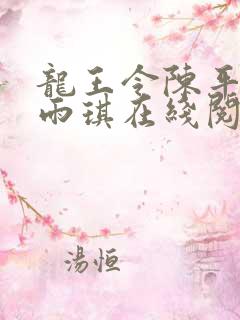 龍王令陳平
雨琪在綫閱
湯恒